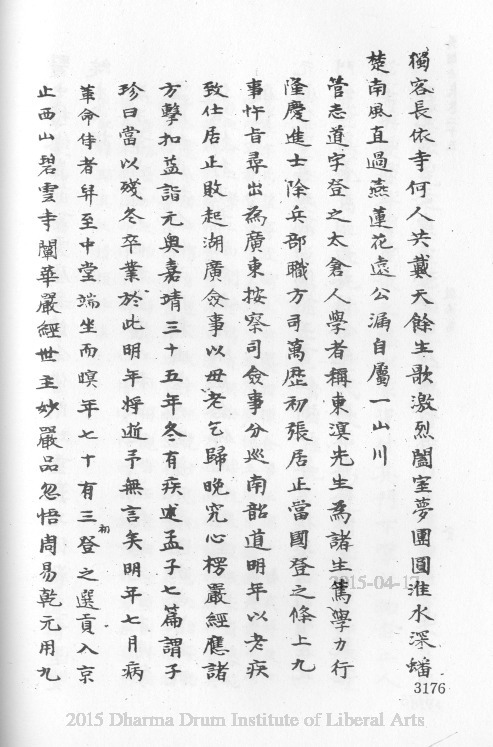 獨客長依寺何人共戴天餘生歌激烈闇室夢團圓淮水深蟠
楚南風直過燕蓮花遠公漏自屬一山川
管志道字登之太倉人學者稱東溟先生為諸生篤學力行
隆慶進士除兵部職方司萬歷初張居正當國登之條上九
事忤旨尋出為廣東按察司僉事分巡南韶道明年以老疾
致仕居正敗起湖廣僉事以母老乞歸晚究心楞嚴經應諸
方擊扣益詣元奧嘉靖三十五年冬有疾述孟子七篇謂子
珍曰當以殘冬卒業於此明年將逝予無言矣明年七月病
革命侍者舁至中堂端坐而暝年七十有三初登之選貢入京
止西山碧雲寺闡華嚴經世主妙嚴品忽悟周易乾元用九
3176
2015-04-17
2015 Dharma Drum Institute of Liberal Arts